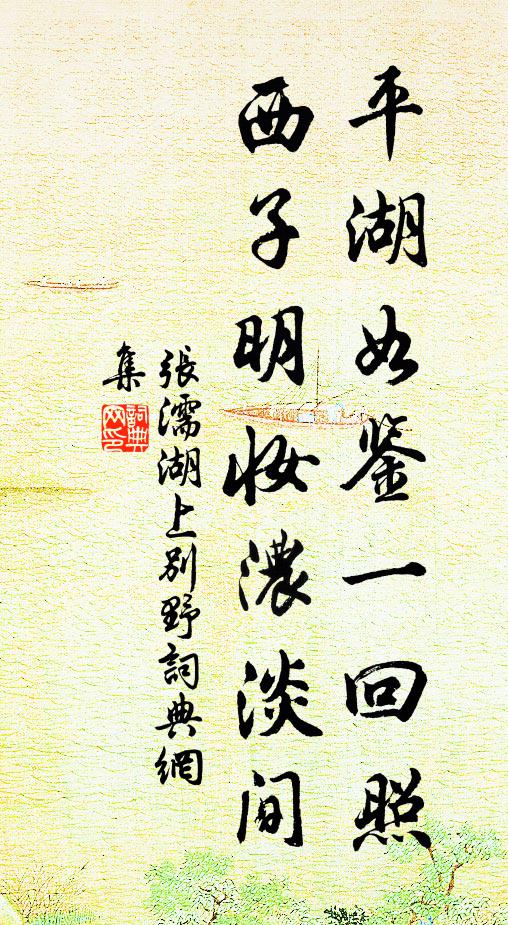 平湖如鉴一回照
西子明妆濃淡间
張濡湖上别野詞典網
集
詞典网印